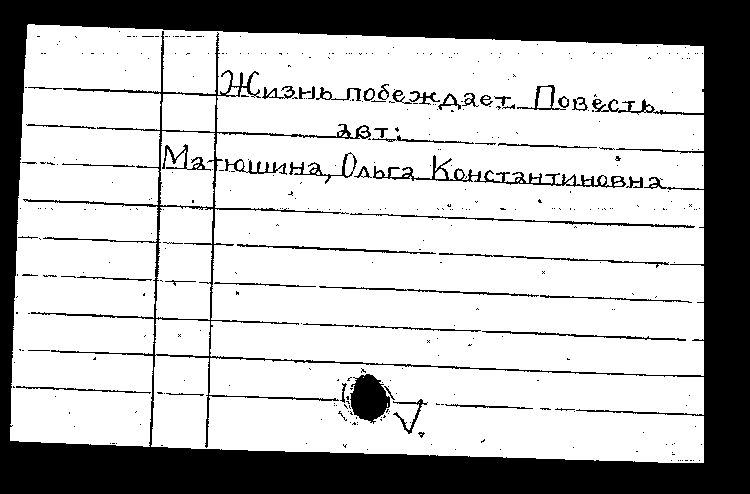 Жизнь побеждает. Повесть.
авт:
Матюшина, Ольга Константиновна